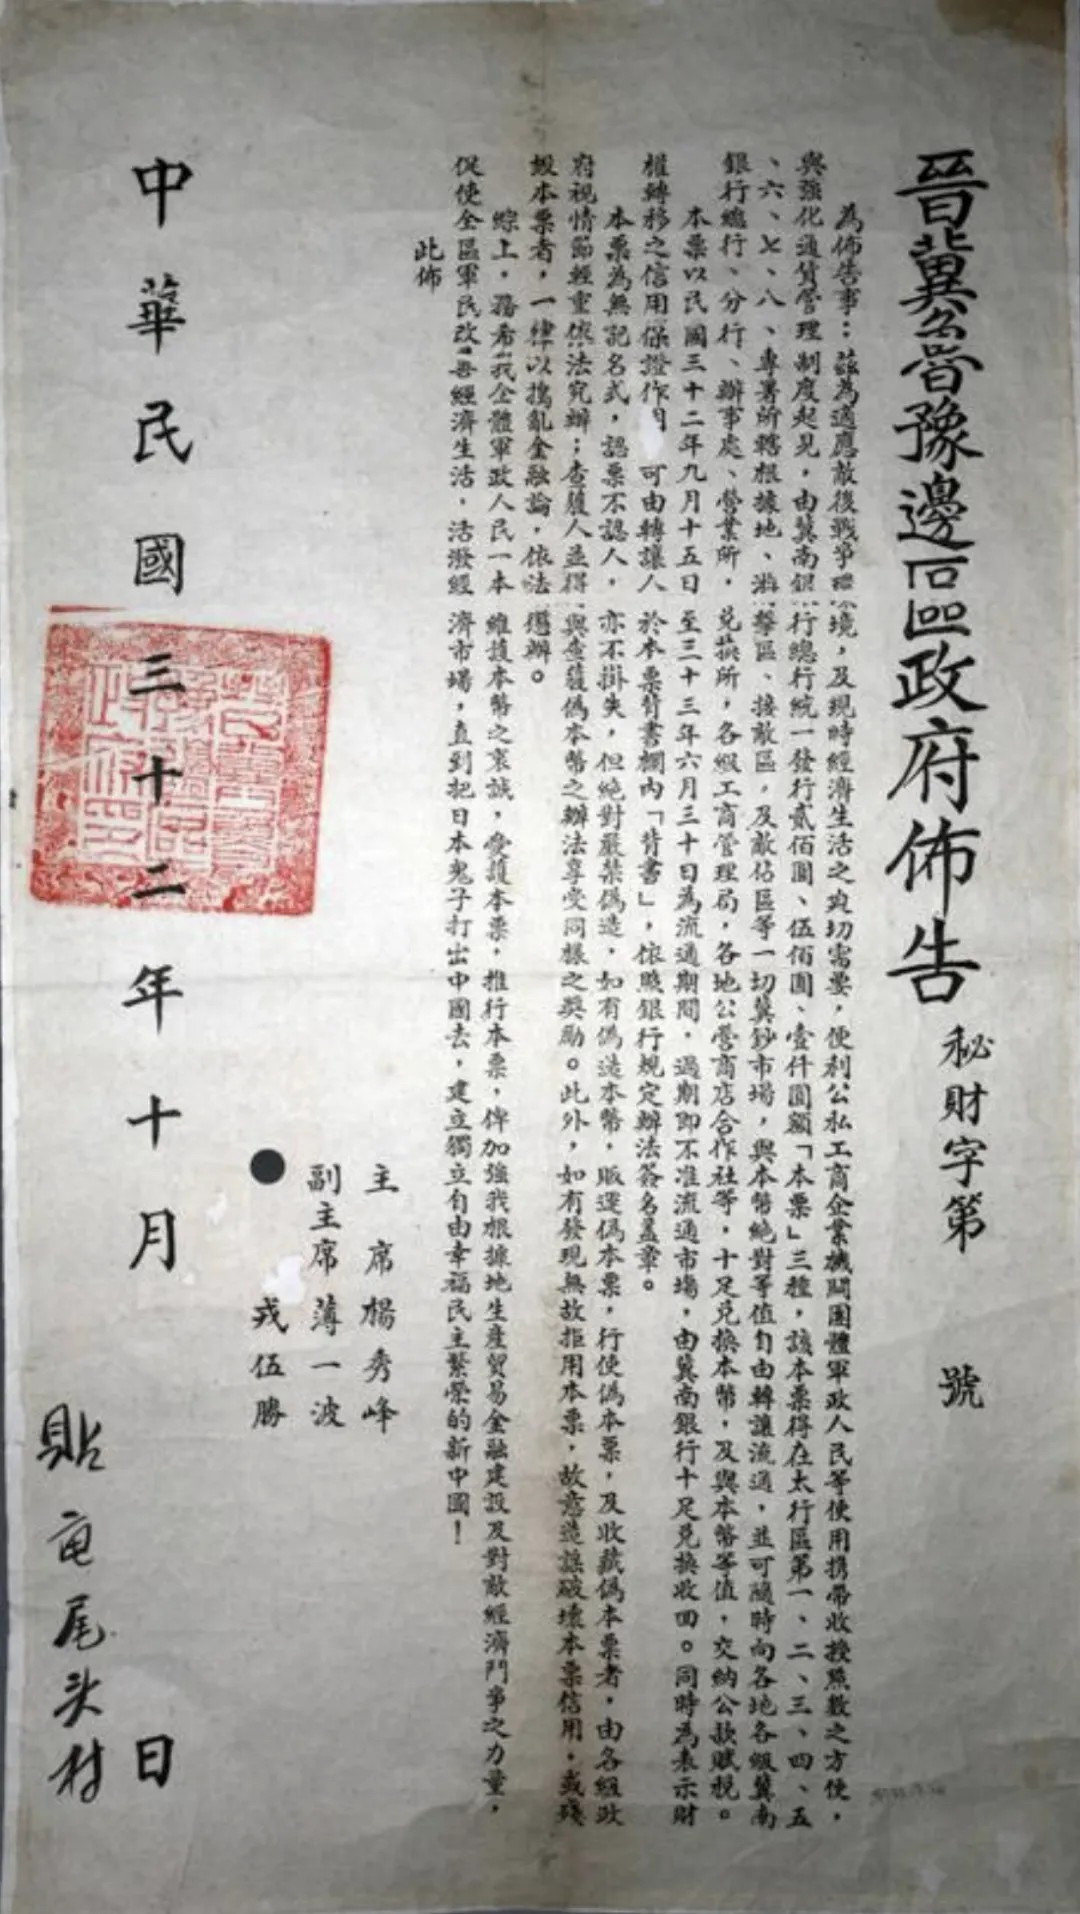 晉冀魯豫邊區政府佈告
秘財字第　號
為佈告事：茲為適應敵後戰爭環境，及現時經濟生活之迫切需要，便利公私工商企業機關團體軍政人民等使用携帶收授照數之方便，
與強化通貨管理制度起見，由冀南銀行總行統一發行貳佰圓、伍佰圓、壹仟圓額「本票」三種，該本票得在太行區第一、二、三、四、五
、六、七、八、專署所轄根據地、游擊區、接敵區，及敵佔區等一切冀鈔市場，與本幣絶對等值自由轉讓流通，並可隨時向各地各級冀南
銀行總行、分行、辦事處、營業所，兌換所，各級工商管理局，各地公營商店合作社等，十足兌換本幣，及與本幣等值，交納公款賦稅。
本票以民國三十二年九月十五日至三十三年六月三十日為流通期間，過期即不准流通市場，由冀南銀行十足兌換收回。同時為表示財
權轉移之信用保證作用 可由轉讓人於本票背書欄內「背書」，依照銀行規定辦法簽名蓋章。
本票為無記名式，認票不認人，亦不掛失，但絶對嚴禁偽造，如有偽造本幣，販運偽本票，行使偽本票，及收藏偽本票者，由各級政
府視情節輕重依法究辦；查獲人並得與查獲偽本幣之辦法享受同樣之獎勵。此外，如有發現無故拒用本票，故意造謠破壞本票信用，或殘
毀本票者，一律以搗亂金融論，依法懲辦。
綜上，務希我全體軍政人民一本維護本幣之衷誠，愛護本票，推行本票，俾加強我根據地生產貿易金融建設及對敵經濟鬥爭之力量，
促使全區軍民改善經濟生活，活潑經濟市場，直到把日本鬼子打出中國去，建立獨立自由幸福民主繁榮的新中國！
此佈
主席 楊秀峰
副主席 薄一波
戎伍勝
中華民國三十二年十月　日
貼 尾头村